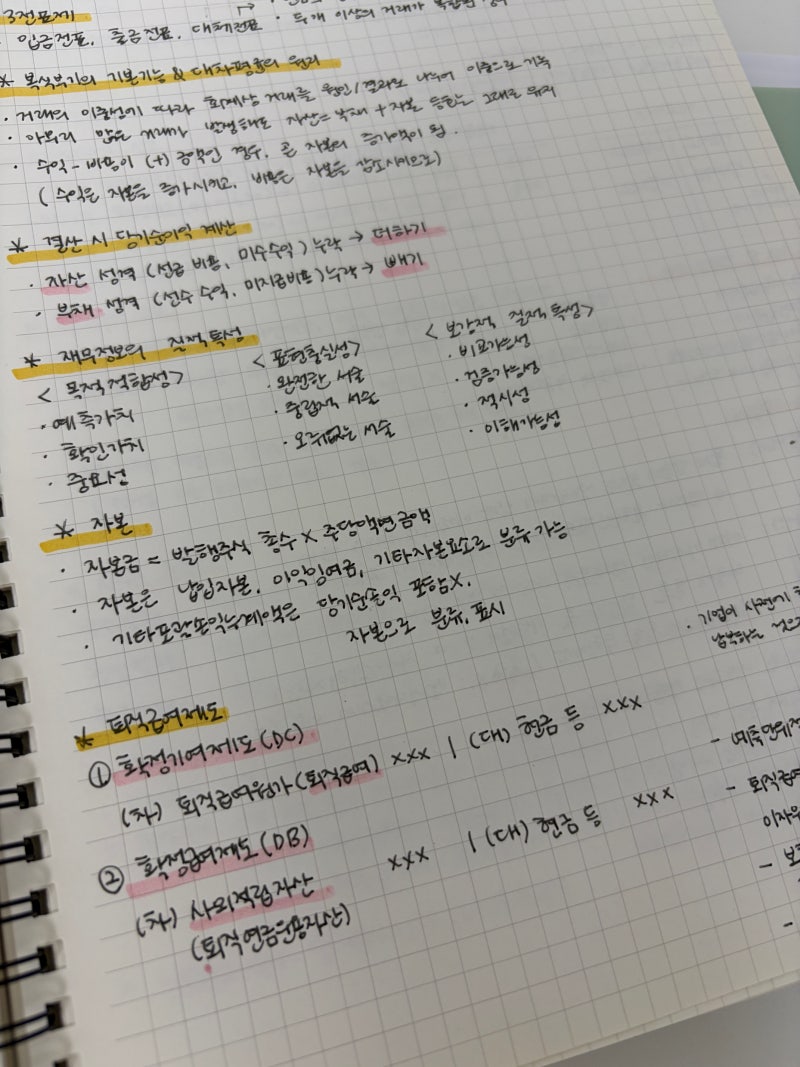 3전표제
· 입금전표, 출금전표, 대체전표 · 두개 이상의 거래가
* 복식부기의 기본기능 & 대차평균의 원리
· 거래의 이중성에 따라 회계상 거래를 원인/결과로 나누어 이중으로 기록
· 아무리 많은 거래가 발생해도 자산 = 부채 + 자본 등식은 그대로 유지
· 수익 - 비용이 (+) 금액인 경우, 곧 자본의 증가액이 됨.
( 수익은 자본을 증가시키고, 비용은 자본을 감소시키므로)
* 결산 시 당기순이익 계산
· 자산 성격 (선급 비용, 미수수익) 누락 → 더하기
· 부채 성격 (선수 수익, 미지급비용) 누락 → 빼기
* 재무정보의 질적특성
< 목적적합성 > < 표현충실성 > < 보강적 질적특성 >
· 예측가치 · 완전한 서술 · 비교가능성
· 확인가치 · 중립적 서술 · 검증가능성
· 중요성 · 오류없는 서술 · 적시성
· 이해가능성
* 자본
· 자본금 = 발행주식 총수 × 주당액면금액
· 자본은 납입자본, 이익잉여금, 기타자본요소로 분류 가능
· 기타포괄손익누계액은 당기순손익 포함X,
자본으로 분류, 표시
· 기업이 사전에
납부하는 것으로
* 퇴직급여제도
① 확정기여제도(DC)
(차) 퇴직급여원가 (퇴직급여) xxx | (대) 현금 등 xxx
② 확정급여제도(DB)
(차) 사외적립자산 xxx | (대) 현금 등 xxx
(퇴직연금운용자산)
- 예측단위
- 퇴직급여
이자
-
-